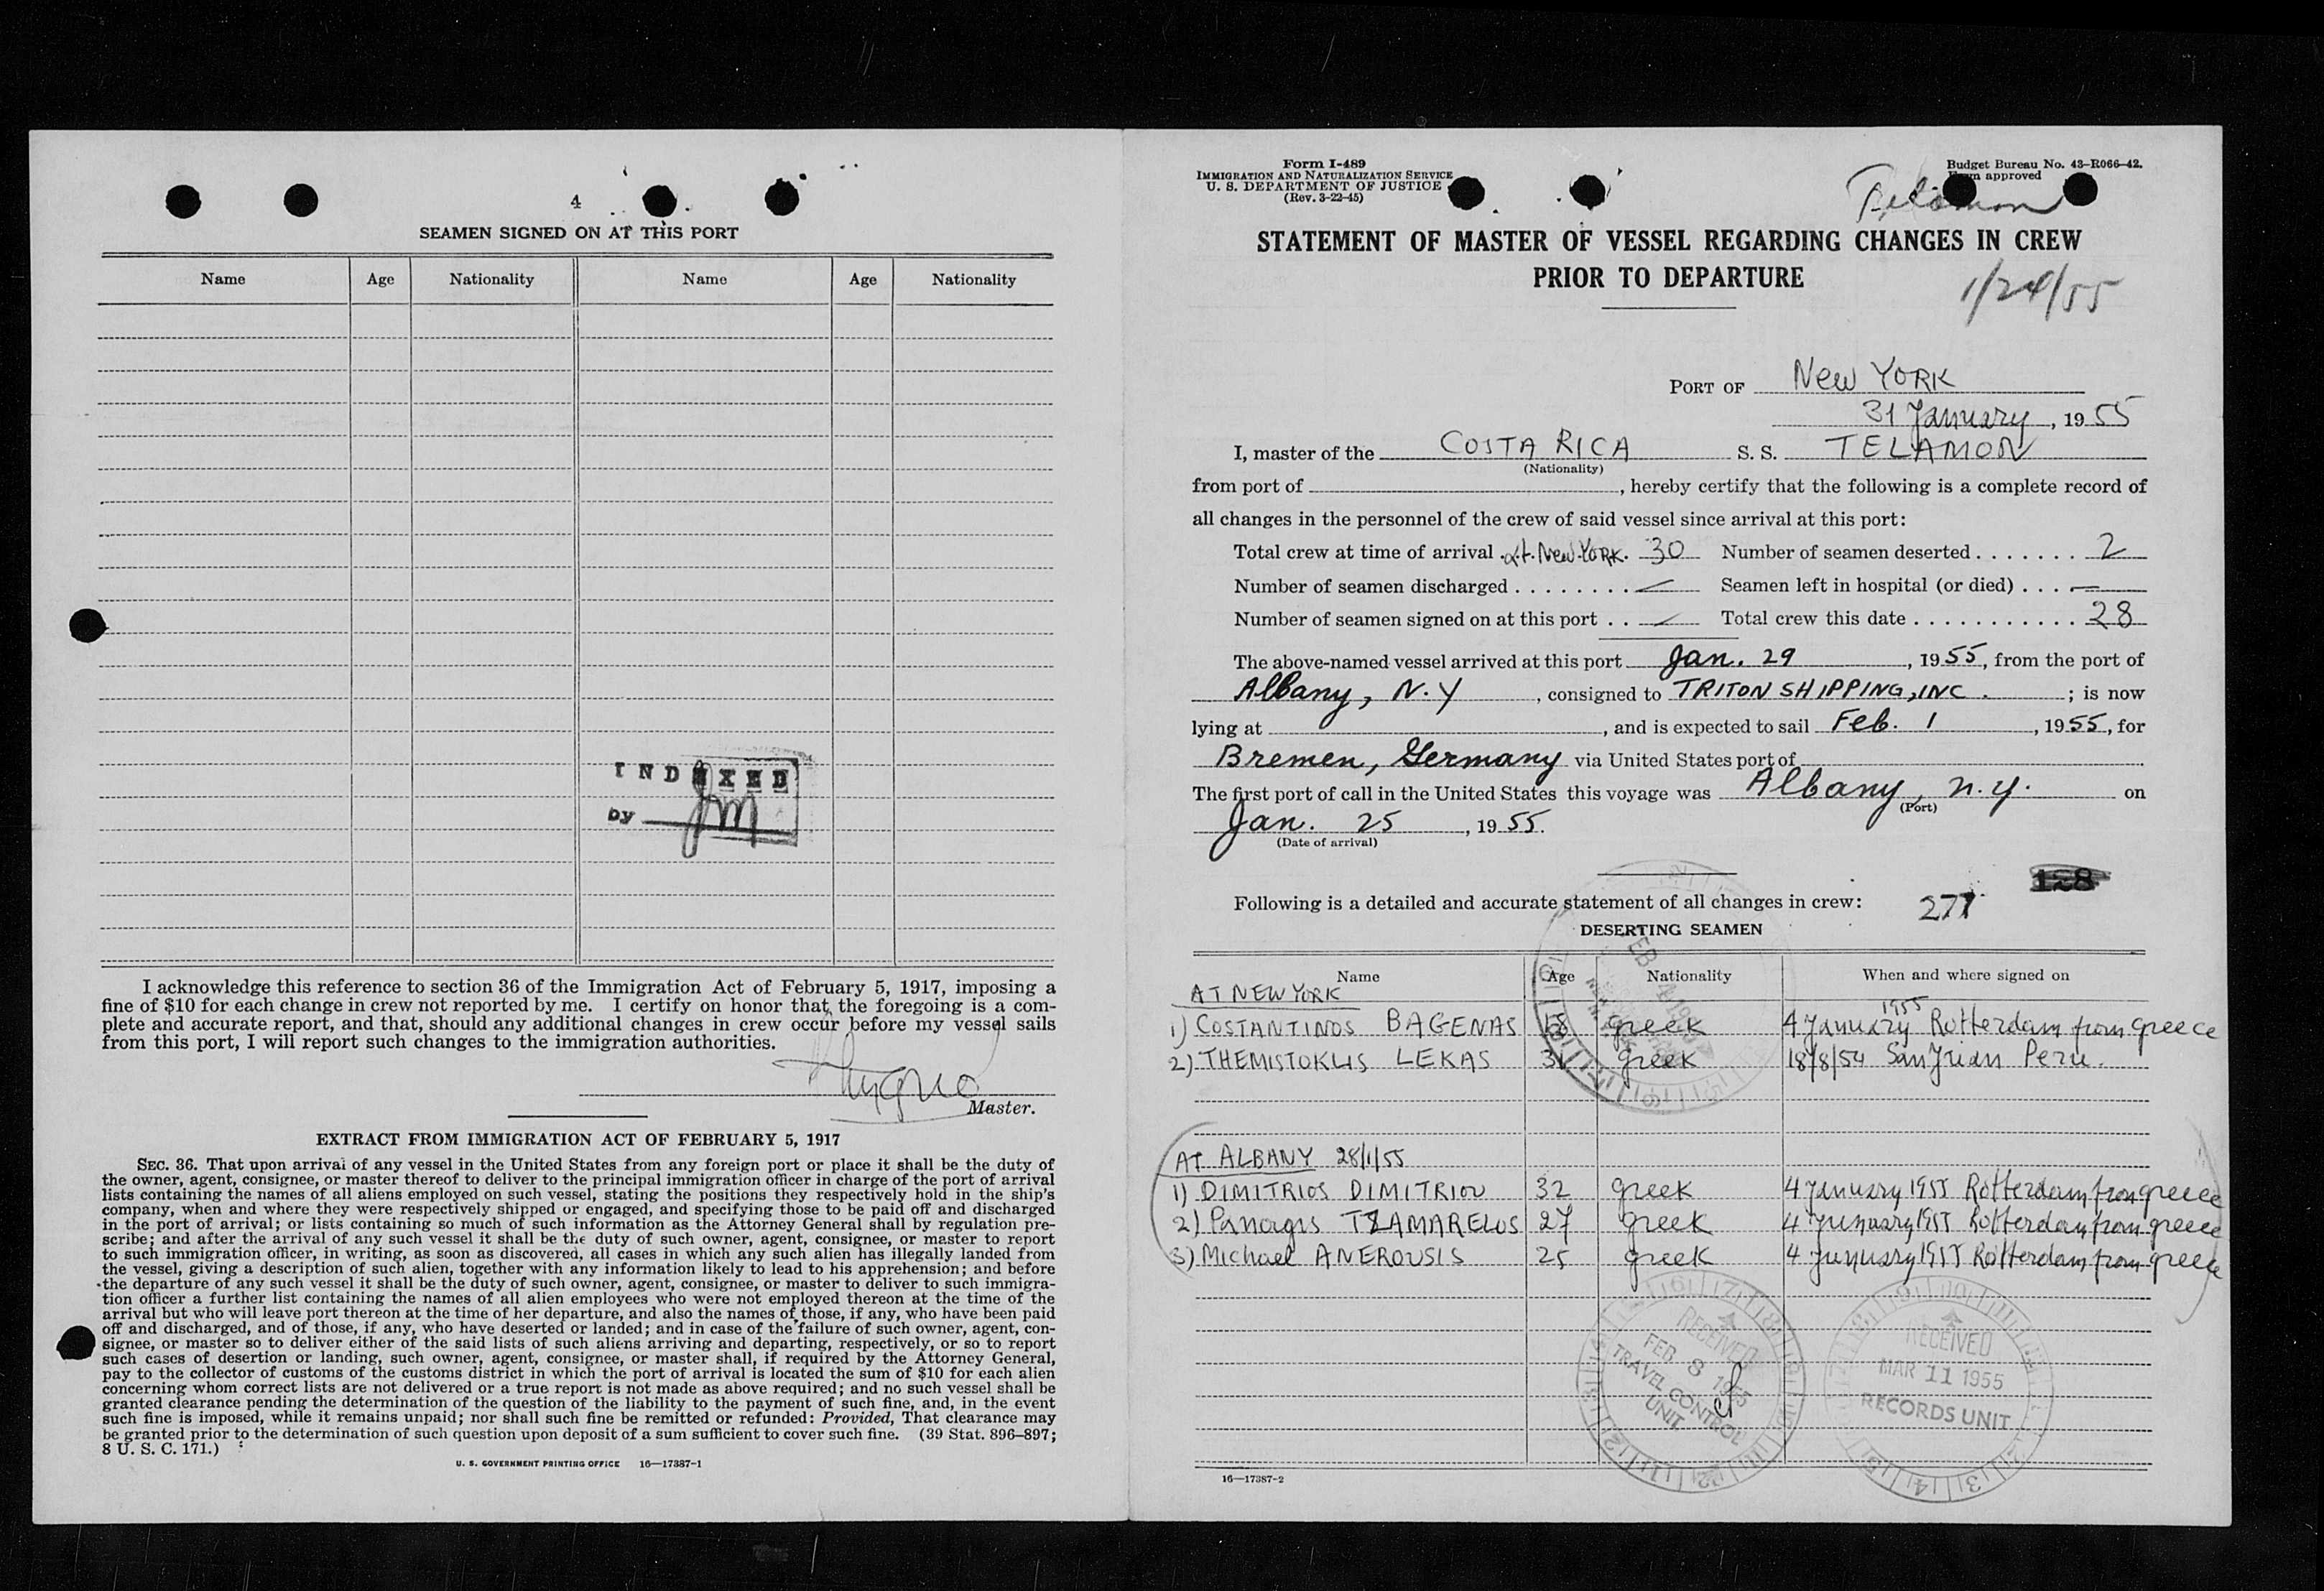 4
SEAMEN SIGNED ON AT THIS PORT
Name Age Nationality Name Age Nationality
INDEXED
by JM
I acknowledge this reference to section 36 of the Immigration Act of February 5, 1917, imposing a
fine of $10 for each change in crew not reported by me. I certify on honor that the foregoing is a com-
plete and accurate report, and that, should any additional changes in crew occur before my vessel sails
from this port, I will report such changes to the immigration authorities.
Master.
EXTRACT FROM IMMIGRATION ACT OF FEBRUARY 5, 1917
SEC. 36. That upon arrival of any vessel in the United States from any foreign port or place it shall be the duty of
the owner, agent, consignee, or master thereof to deliver to the principal immigration officer in charge of the port of arrival
lists containing the names of all aliens employed on such vessel, stating the positions they respectively hold in the ship's
company, when and where they were respectively shipped or engaged, and specifying those to be paid off and discharged
in the port of arrival; or lists containing so much of such information as the Attorney General shall by regulation pre-
scribe; and after the arrival of any such vessel it shall be the duty of such owner, agent, consignee, or master to report
to such immigration officer, in writing, as soon as discovered, all cases in which any such alien has illegally landed from
the vessel, giving a description of such alien, together with any information likely to lead to his apprehension; and before
the departure of any such vessel it shall be the duty of such owner, agent, consignee, or master to deliver to such immigra-
tion officer a further list containing the names of all alien employees who were not employed thereon at the time of the
arrival but who will leave port thereon at the time of her departure, and also the names of those, if any, who have been paid
off and discharged, and of those, if any, who have deserted or landed; and in case of the failure of such owner, agent, con-
signee, or master so to deliver either of the said lists of such aliens arriving and departing, respectively, or so to report
such cases of desertion or landing, such owner, agent, consignee, or master shall, if required by the Attorney General,
pay to the collector of customs of the customs district in which the port of arrival is located the sum of $10 for each alien
concerning whom correct lists are not delivered or a true report is not made as above required; and no such vessel shall be
granted clearance pending the determination of the question of the liability to the payment of such fine, and, in the event
such fine is imposed, while it remains unpaid; nor shall such fine be remitted or refunded: Provided, That clearance may
be granted prior to the determination of such question upon deposit of a sum sufficient to cover such fine. (39 Stat. 896–897;
8 U. S. C. 171.)
U. S. GOVERNMENT PRINTING OFFICE 16—17387-1
Form I-489
IMMIGRATION AND NATURALIZATION SERVICE
U. S. DEPARTMENT OF JUSTICE
(Rev. 3-22-45)
Budget Bureau No. 43-R066-42.
approved
Telamon
STATEMENT OF MASTER OF VESSEL REGARDING CHANGES IN CREW
PRIOR TO DEPARTURE
1/24/55
PORT OF New YORK
31 January, 1955
I, master of the COSTA RICA S. S. TELAMON
(Nationality)
from port of , hereby certify that the following is a complete record of
all changes in the personnel of the crew of said vessel since arrival at this port:
Total crew at time of arrival at New York. 30 Number of seamen deserted 2
Number of seamen discharged Seamen left in hospital (or died) —
Number of seamen signed on at this port Total crew this date 28
The above-named vessel arrived at this port Jan. 29, 1955, from the port of
Albany, N.Y, consigned to TRITON SHIPPING, INC.; is now
lying at , and is expected to sail Feb. 1, 1955, for
Bremen, Germany via United States port of
The first port of call in the United States this voyage was Albany, N.Y. on
(Port)
Jan. 25, 1955.
(Date of arrival)
128
Following is a detailed and accurate statement of all changes in crew: 277
DESERTING SEAMEN
Name Age Nationality When and where signed on
AT NEW YORK
1) COSTANTINOS BAGENAS 18 greek 4 January 1955 Rotterdam from greece
2) THEMISTOKLIS LEKAS 31 greek 18/8/54 San Juan Peru.
AT ALBANY 28/1/55
1) DIMITRIOS DIMITRIOU 32 greek 4 January 1955 Rotterdam from greece
2) Panagis TZAMARELOS 27 greek 4 January 1955 Rotterdam from greece
3) Michael ANEROUSIS 25 greek 4 January 1955 Rotterdam from greece
RECEIVED
FEB 8 1955
TRAVEL CONTROL
UNIT
RECEIVED
MAR 11 1955
RECORDS UNIT
16—17387-2